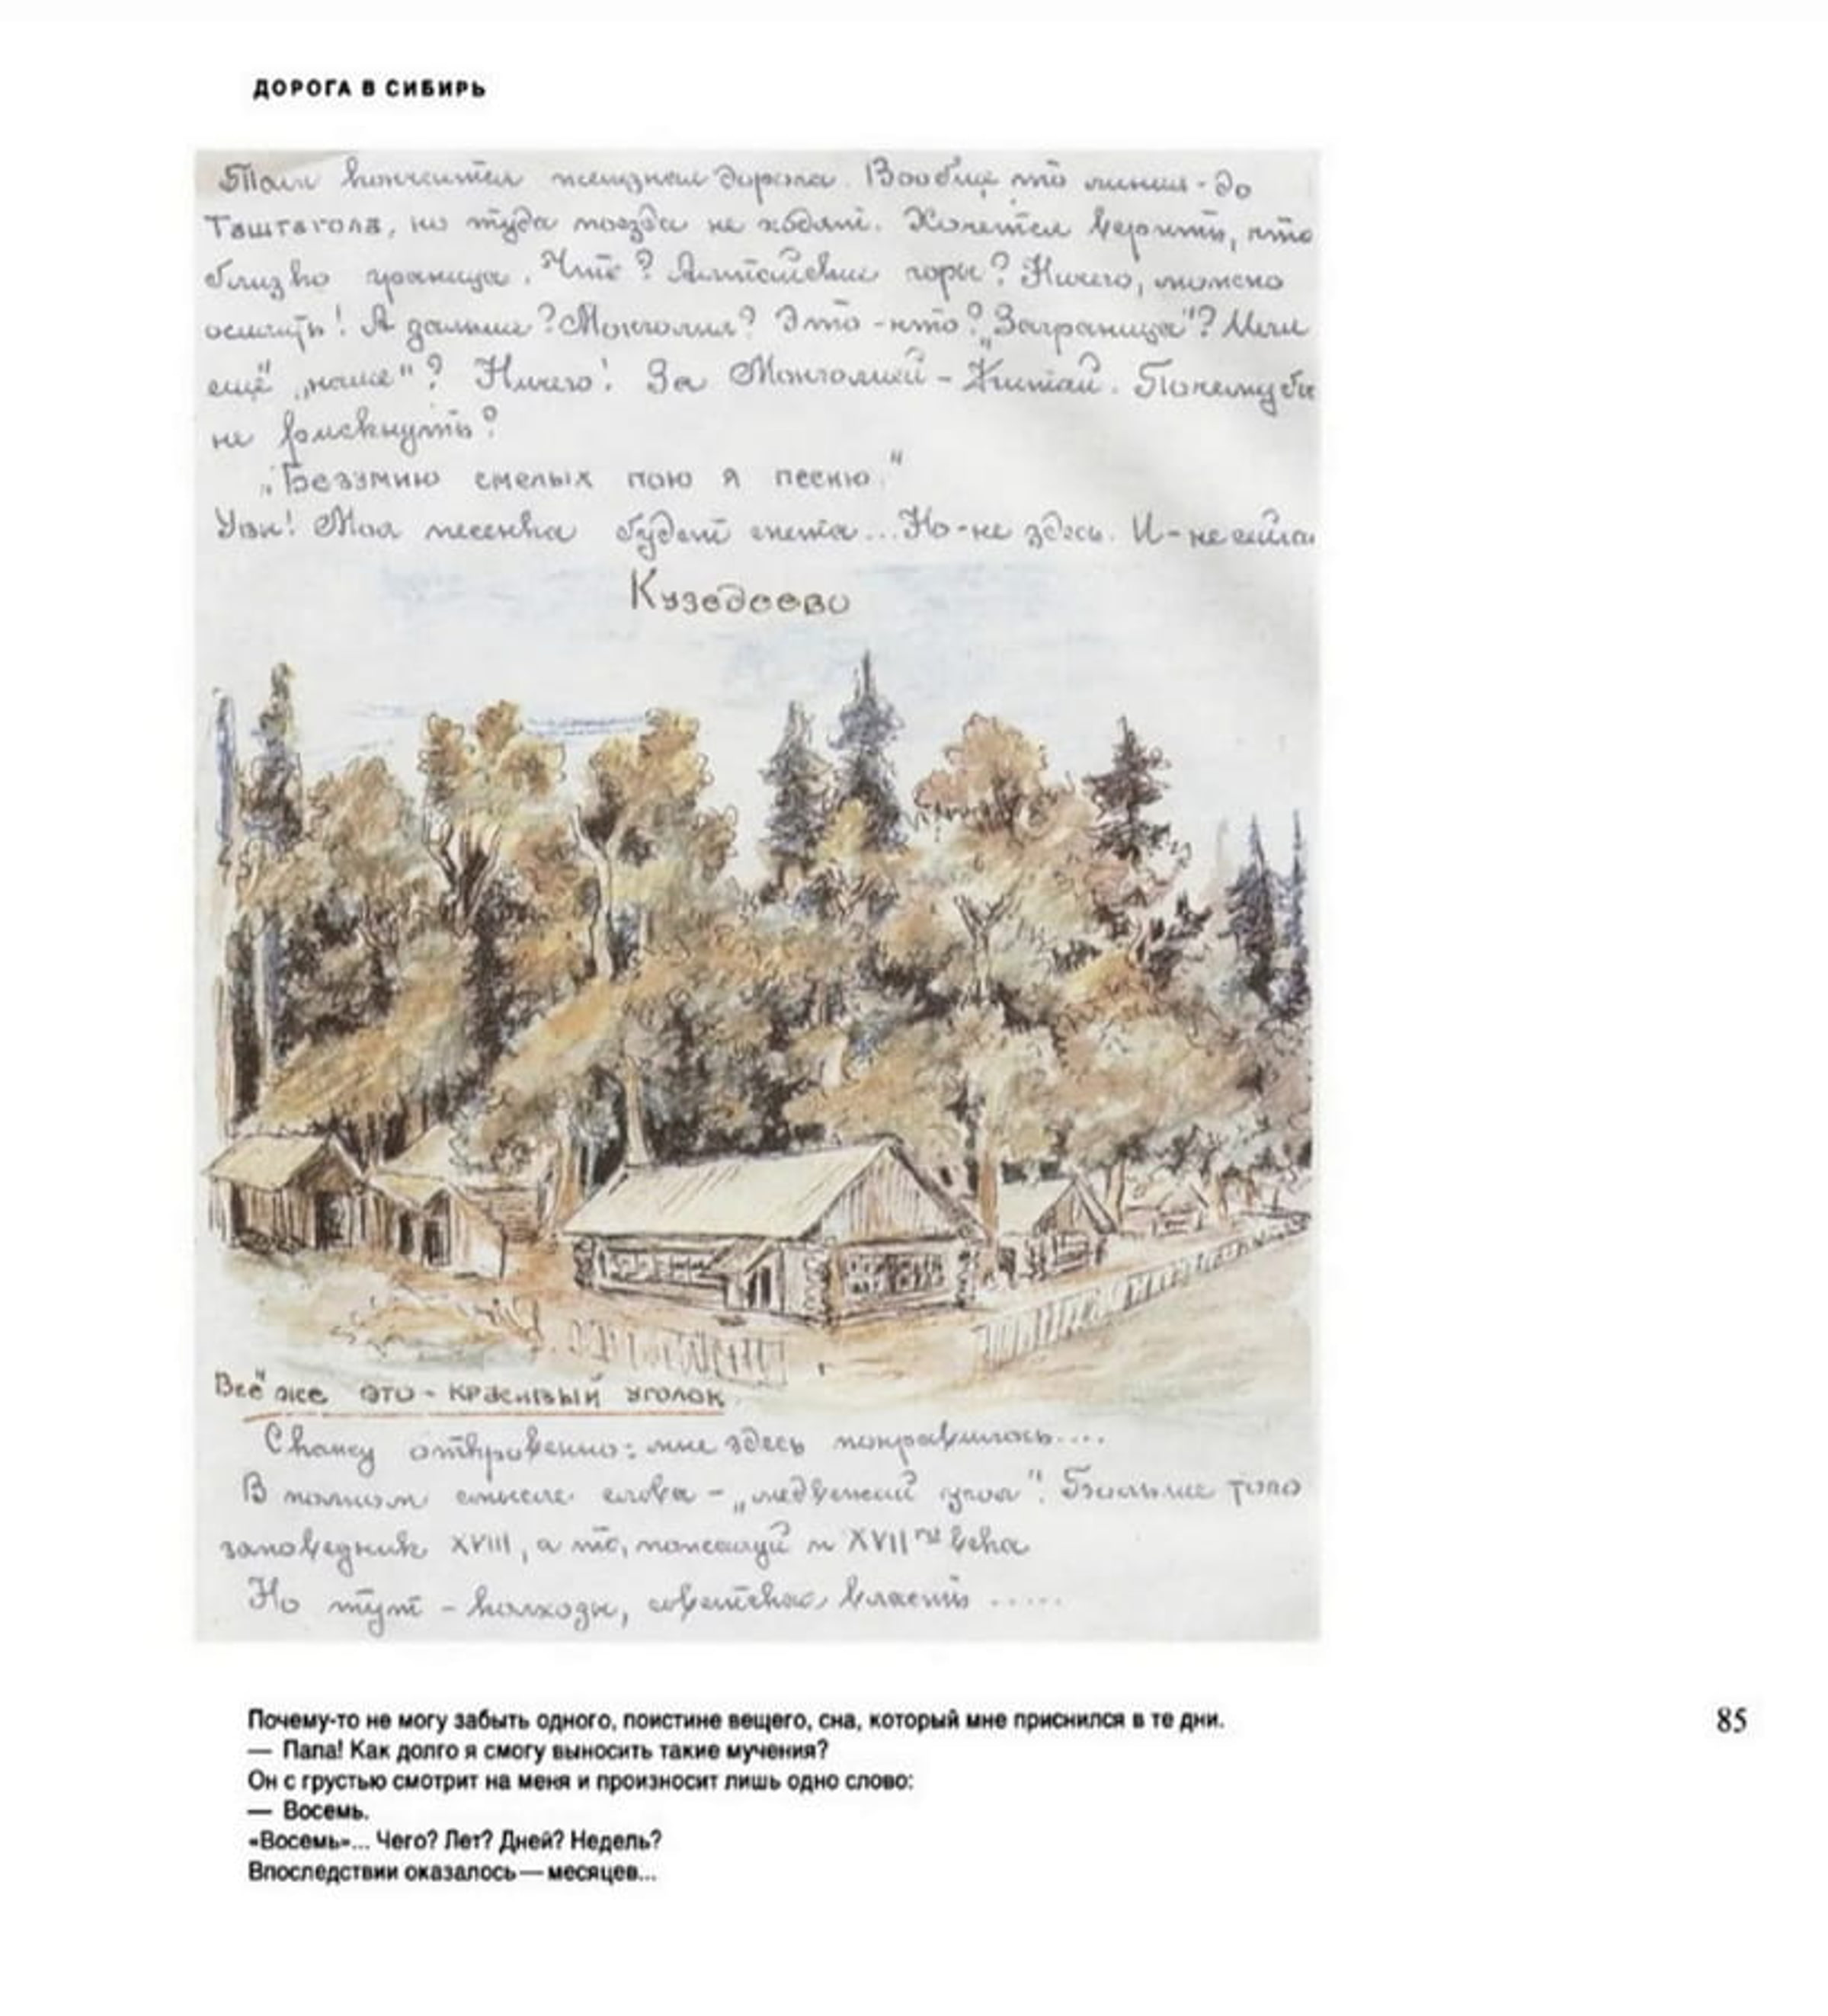 ДОРОГА В СИБИРЬ
Там кончится железная дорога. Вообще то линия - до
Таштагола, но туда поезда не ходят. Хочется верить, что
близко граница. Что? Алтайские горы? Ничего, можно
осилить! А дальше? Монголия? Это - что? „Заграница"? Или
ещё „наше"? Ничего! За Монголией - Китай. Почему бы
не рискнуть?
„Безумию смелых пою я песню."
Увы! Моя песенка будет спета... Но - не здесь. И - не сейчас
Кузедеево
Всё же это - красивый уголок
Скажу откровенно: мне здесь понравилось....
В полном смысле слова - „медвежий угол". Больше того
заповедник XVIII, а то, пожалуй и XVII го века
Но тут - колхозы, советская власть .....
Почему-то не могу забыть одного, поистине вещего, сна, который мне приснился в те дни.
— Папа! Как долго я смогу выносить такие мучения?
Он с грустью смотрит на меня и произносит лишь одно слово:
— Восемь.
«Восемь»... Чего? Лет? Дней? Недель?
Впоследствии оказалось — месяцев...
85